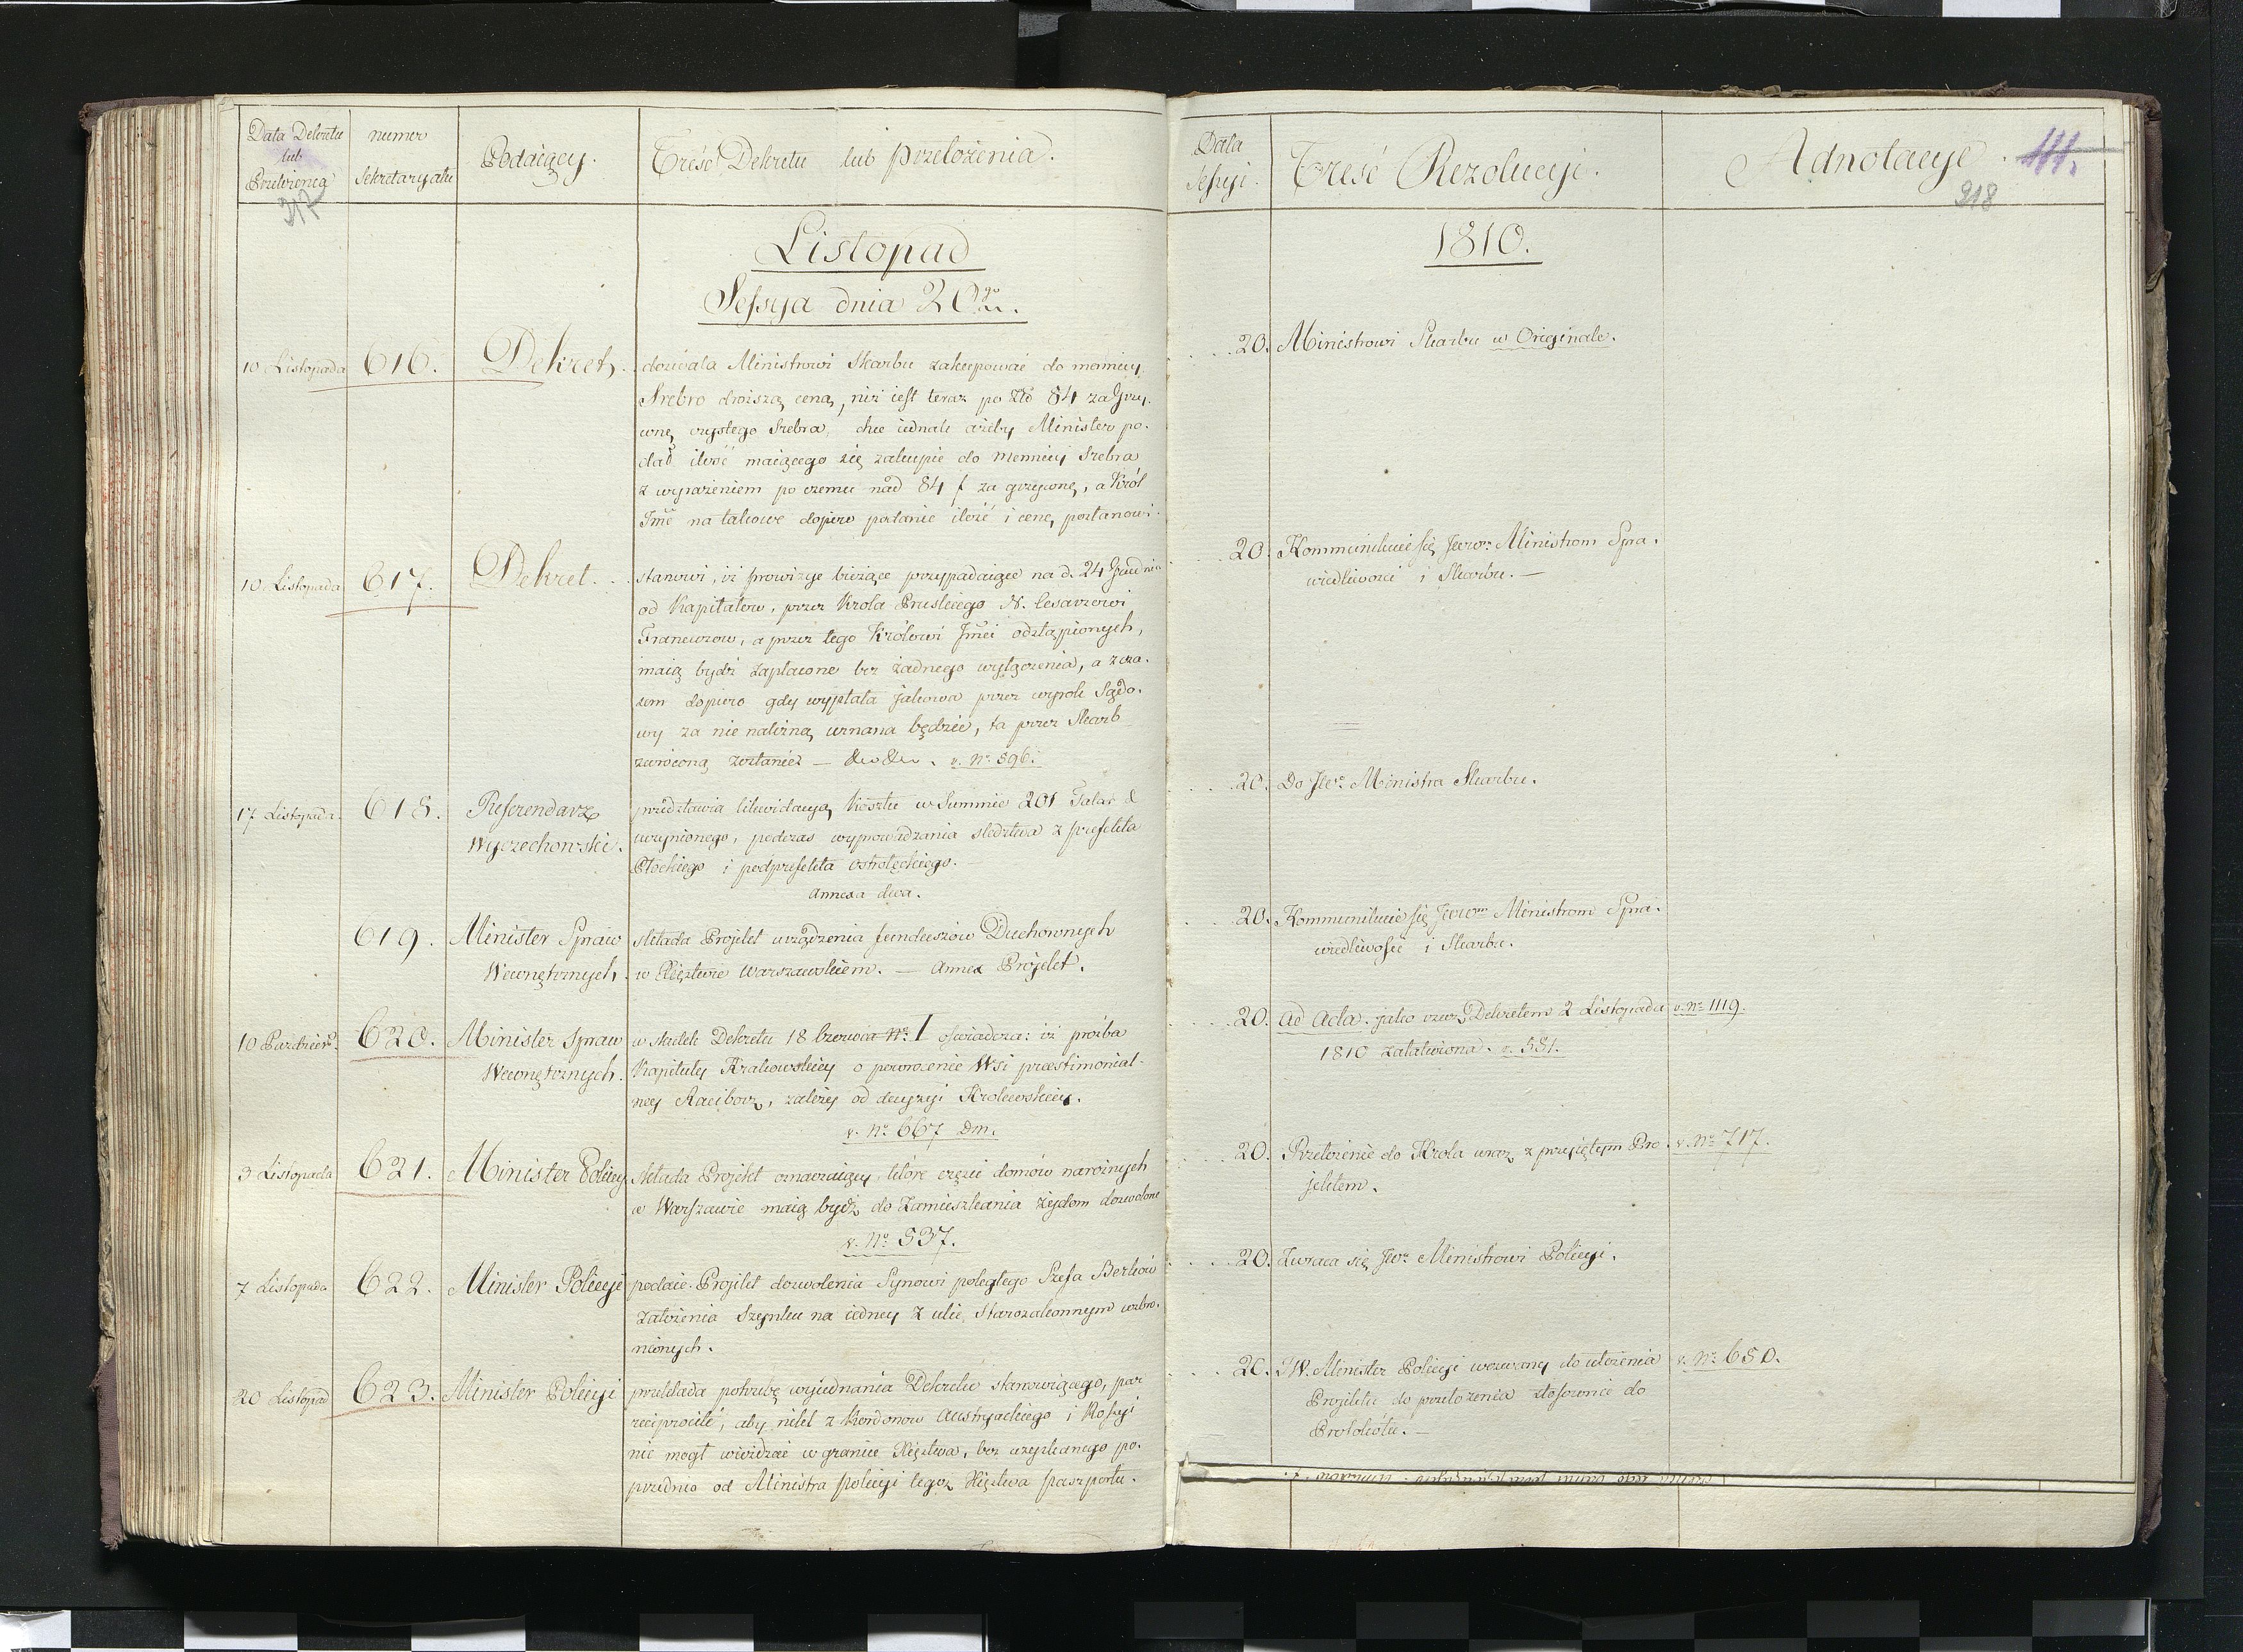 Data Dekretu
lub
Przełożenia
numer
Sekretaryatu
Podaiący.
Treść Dekretu lub przełożenia.
217
Listopad
Sessya dnia 20go
10 Listopada 616. Dekret.. dozwala Ministrowi Skarbu zakupować do mennicy
Srebro droższą ceną, niż iest teraz po Złł 84 za Grzy-
wnę czystego Srebra, chce iednak ażeby Minister po-
dał ilość maiącego się zakupić do Mennicy Srebra
z wyrażeniem po czemu nad 84 f za grzywnę, a Król
Jmć na takowe dopiero podanie ilość i cenę postanowi.
10. Listopada 617. Dekret... stanowi, iż prowizye bieżące przypadaiące na d. 24 Grudnia
od Kapitałow, przez Krola Pruskiego N. Cesarzowi
Francuzow, a przez tego Królowi Jmci odstąpionych,
maią bydź zapłacone bez żadnego wyłączenia, a zcza-
sem dopiero gdy wypłata jakowa przez wyrok Sądo-
wy za nie należną uznana będzie, ta przez Skarb
zwróconą zostanie — &c &c. v. No 596.
17 Listopada. 618. Referendarz
Wyczechowski.
przedstawia likwidacyą kosztu w Summie 201 Talar
uczynionego, podczas wyprowadzania sledztwa z prefekta
Płockiego i podprefekta Ostrołęckiego. —
Annexa dwa.
619. Minister Spraw
Wewnętrznych
składa Projekt urządzenia funduszow Duchownych
w Xięztwie Warszawskiem. — Annex Projekt.
10 Pazdzier. 620. Minister Spraw
Wewnętrznych.
w skutek Dekretu 18 Czerwca No. 1 oświadcza: iż prożba
Kapituły Krakowskiey o powrocenie Wsi praestimonial-
ney Raciborz, zależy od decyzyi Krolewskiey.
v. No 667 Dm.
3 Listopada 621. Minister Policyi składa Projekt oznaczaiący, które częsci domów narożnych
w Warszawie maią bydź do Zamieszkania Żydom dozwolone
v. No 537.
7 Listopada 622. Minister Policyi podaie Projekt dozwolenia Synowi poległego Szefa Berków
założenia Szynku na iedney z ulic, Starozakonnym wzbro-
nionych.
20 Listopad 623. Minister Policyi przekłada potrzebę wyiednania Dekretu stanowiącego, par
reciprocité, aby nikt z Kordonow Austryackiego i Rossyi
nie mogł wieżdżać w granice Xięztwa, bez uzyskanego po-
przednio od Ministra policyi tegoż Xięztwa paszportu.
Data
Sessyi.
Treść Rezolucyi.
Adnotacye.
111.
218
1810.
... 20. Ministrowi Skarbu w Originale.
... 20. Kommunikuie się Jwom Ministrom Spra-
wiedliwości i Skarbu. —
... 20. Do Jwo Ministra Skarbu.
... 20. Kommunikuie się Jwom Ministrom Spra-
wiedliwości i Skarbu.
... 20. Ad Acta. jako rzecz Dekretem 2 Listopada
1810 załatwiona. v. 581.
v. No 1119.
... 20. Przełożenie do Krola wraz z przyiętym Pro-
jektem.
v. No 717.
... 20. Zwraca się Jwu Ministrowi Policyi.
... 20. JW. Minister Policyi wezwany do ułożenia
Projektu do przełożenia stosownie do
Protokółu. —
v. No 650.